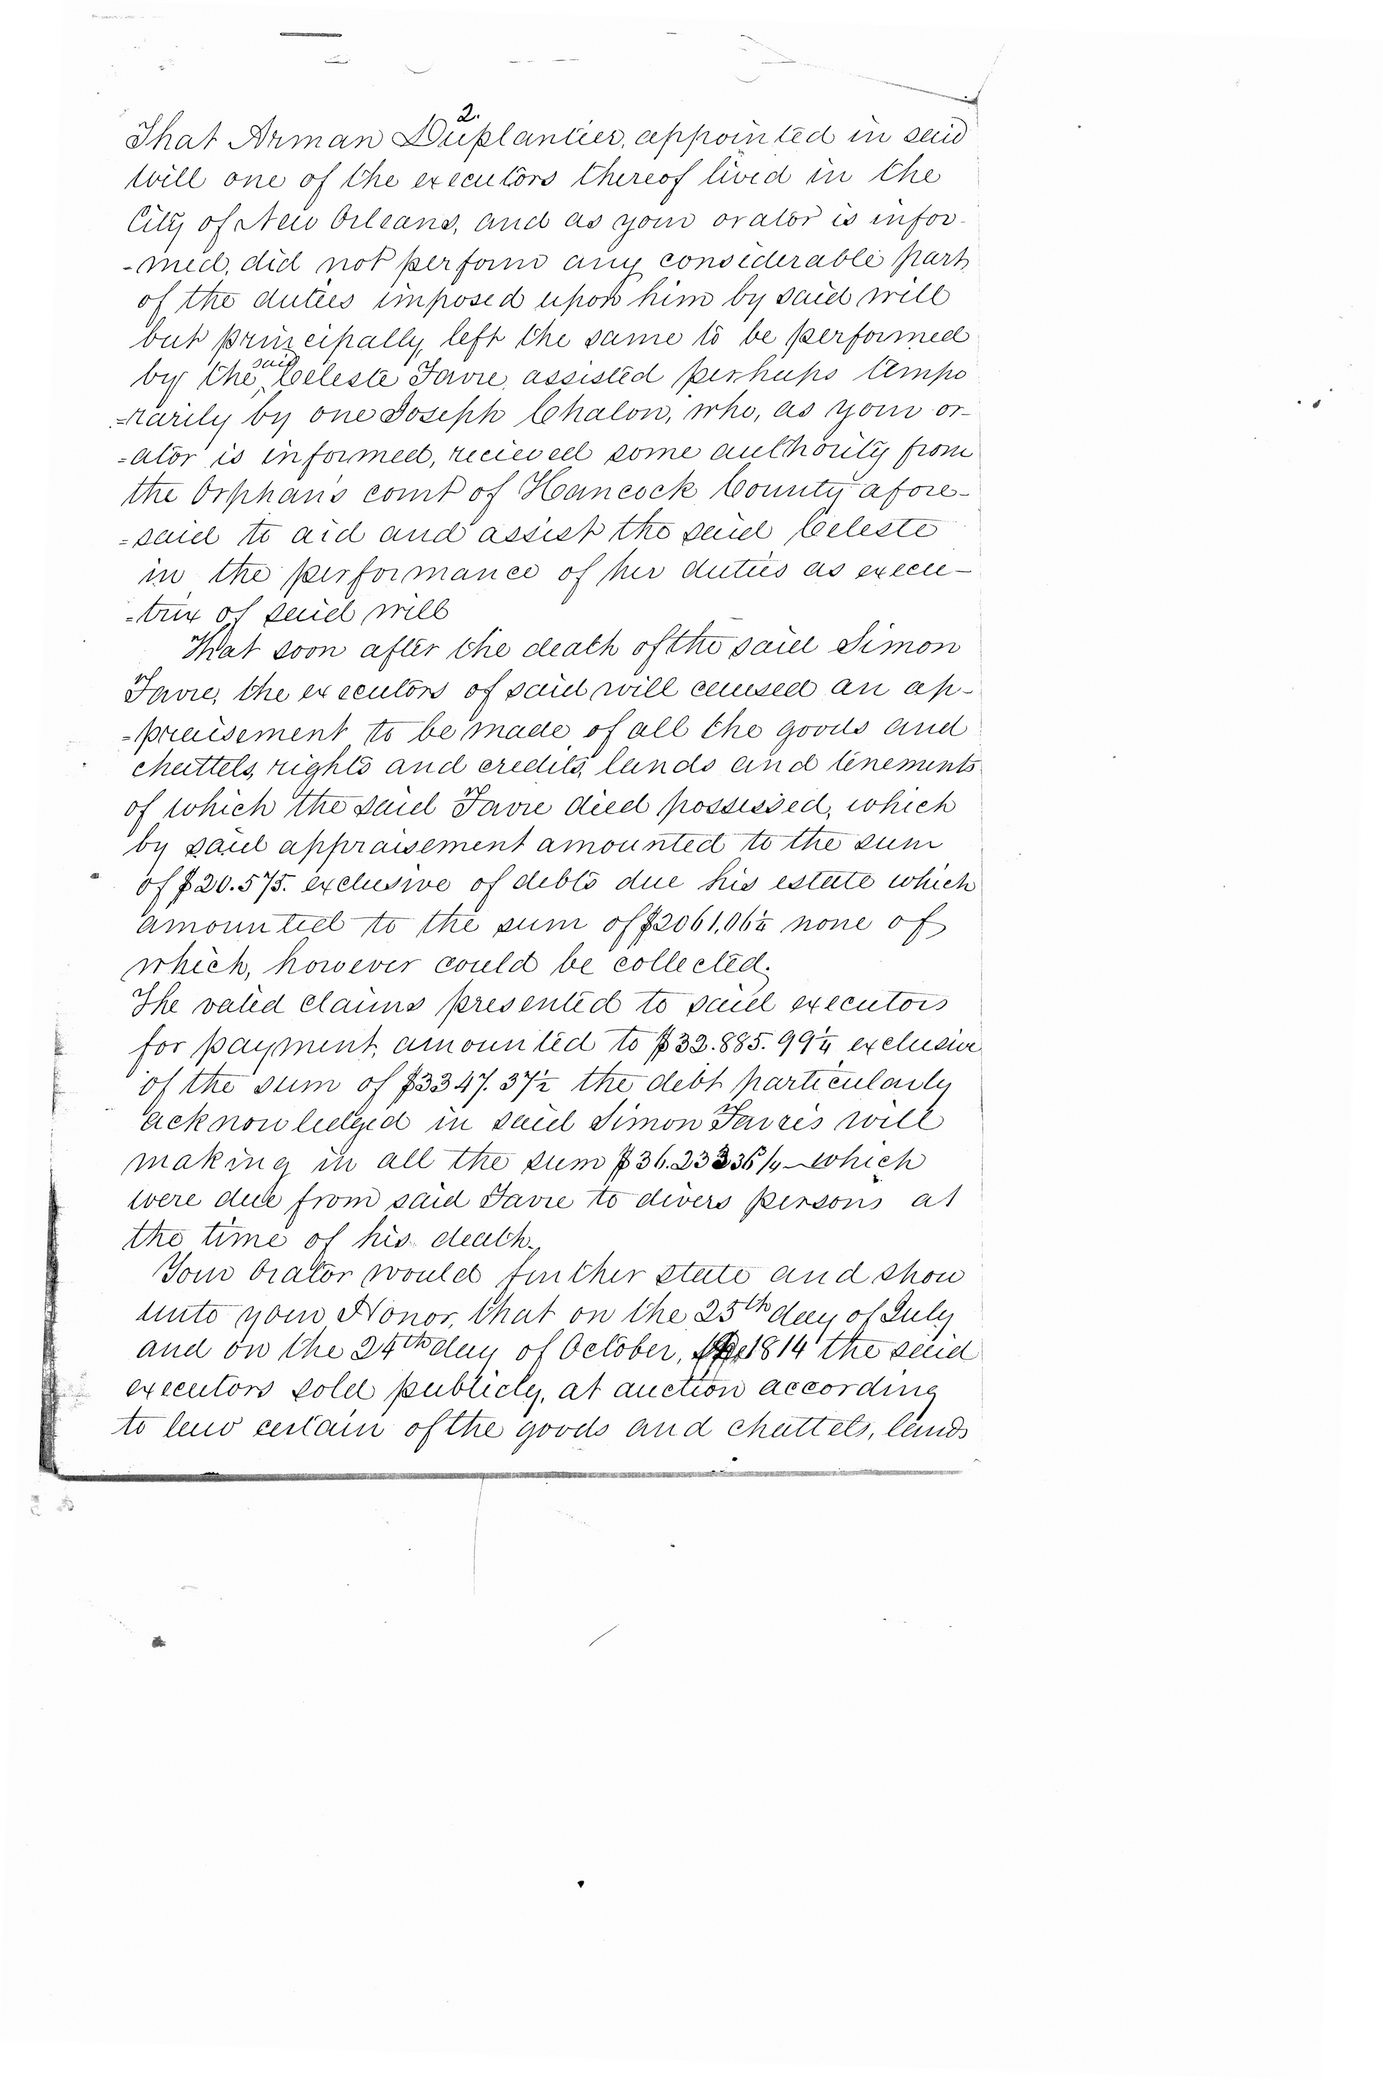 2.
That Arman Duplantier, appointed in said
will one of the executors thereof lived in the
City of New Orleans, and as your orator is infor-
-med, did not perform any considerable part
of the duties imposed upon him by said will
but principally left the same to be performed
by the said Celeste Favre assisted perhaps tempo
=rarily by one Joseph Chalon, who, as your or-
=ator is informed, recieved some authority from
the Orphan's court of Hancock County afore-
=said to aid and assist the said Celeste
in the performance of her duties as execu-
=trix of said will
That soon after the death of the said Simon
Favre, the executors of said will caused an ap-
=praisement to be made of all the goods and
chattels, rights and credits, lands and tenements
of which the said Favre died possessed, which
by said appraisement amounted to the sum
of $20.575. exclusive of debts due his estate which
amounted to the sum of $2061,06¼ none of
which, however could be collected.
The valid claims presented to said executors
for payment, amounted to $32.885.99¼ exclusive
of the sum of $3347.37½ the debt particularly
acknowledged in said Simon Favre's will
making in all the sum $36.233 36/4 which
were due from said Favre to divers persons at
the time of his death.
Your Orator would further state and show
unto your Honor, that on the 25th day of July
and on the 24th day of October, 1814 the said
executors sold publicly, at auction according
to law certain of the goods and chattels, lands